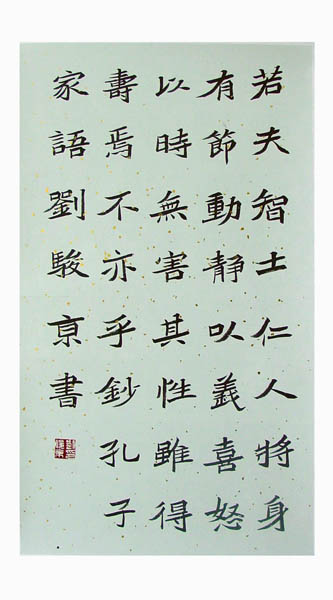 若夫智士仁人将身
有節動静以義喜怒
以時無害其性雖得
壽焉不亦乎鈔孔子
家語劉駿京書